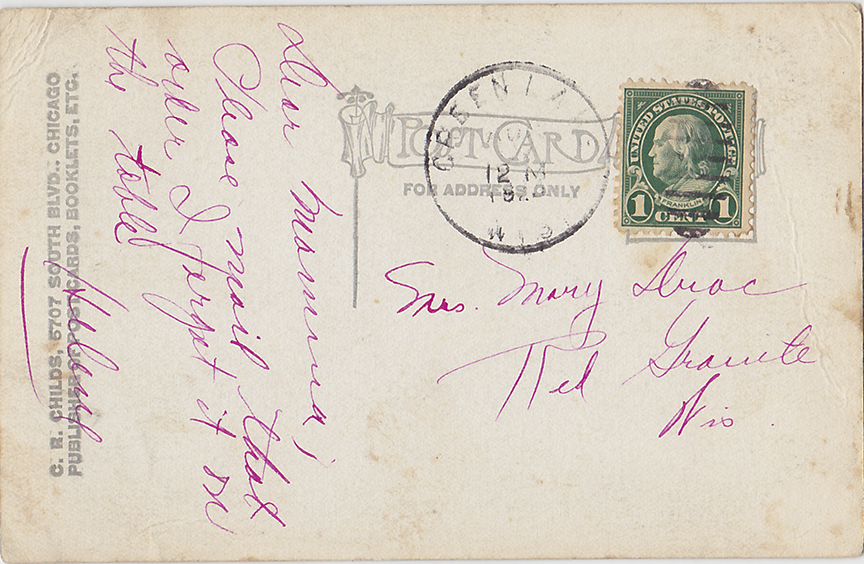 Dear Momma,
Please mail that
order I forgot it on
the table
Helen
C. R. CHILDS, 5707 SOUTH BLVD., CHICAGO
PUBLISHER OF POST CARDS, BOOKLETS, ETC.
POST CARD
FOR ADDRESS ONLY
GREEN LAKE
12 M
WIS.
UNITED STATES POSTAGE
FRANKLIN
1 CENT 1
Mrs. Mary Drac
Red Granite
Wis.